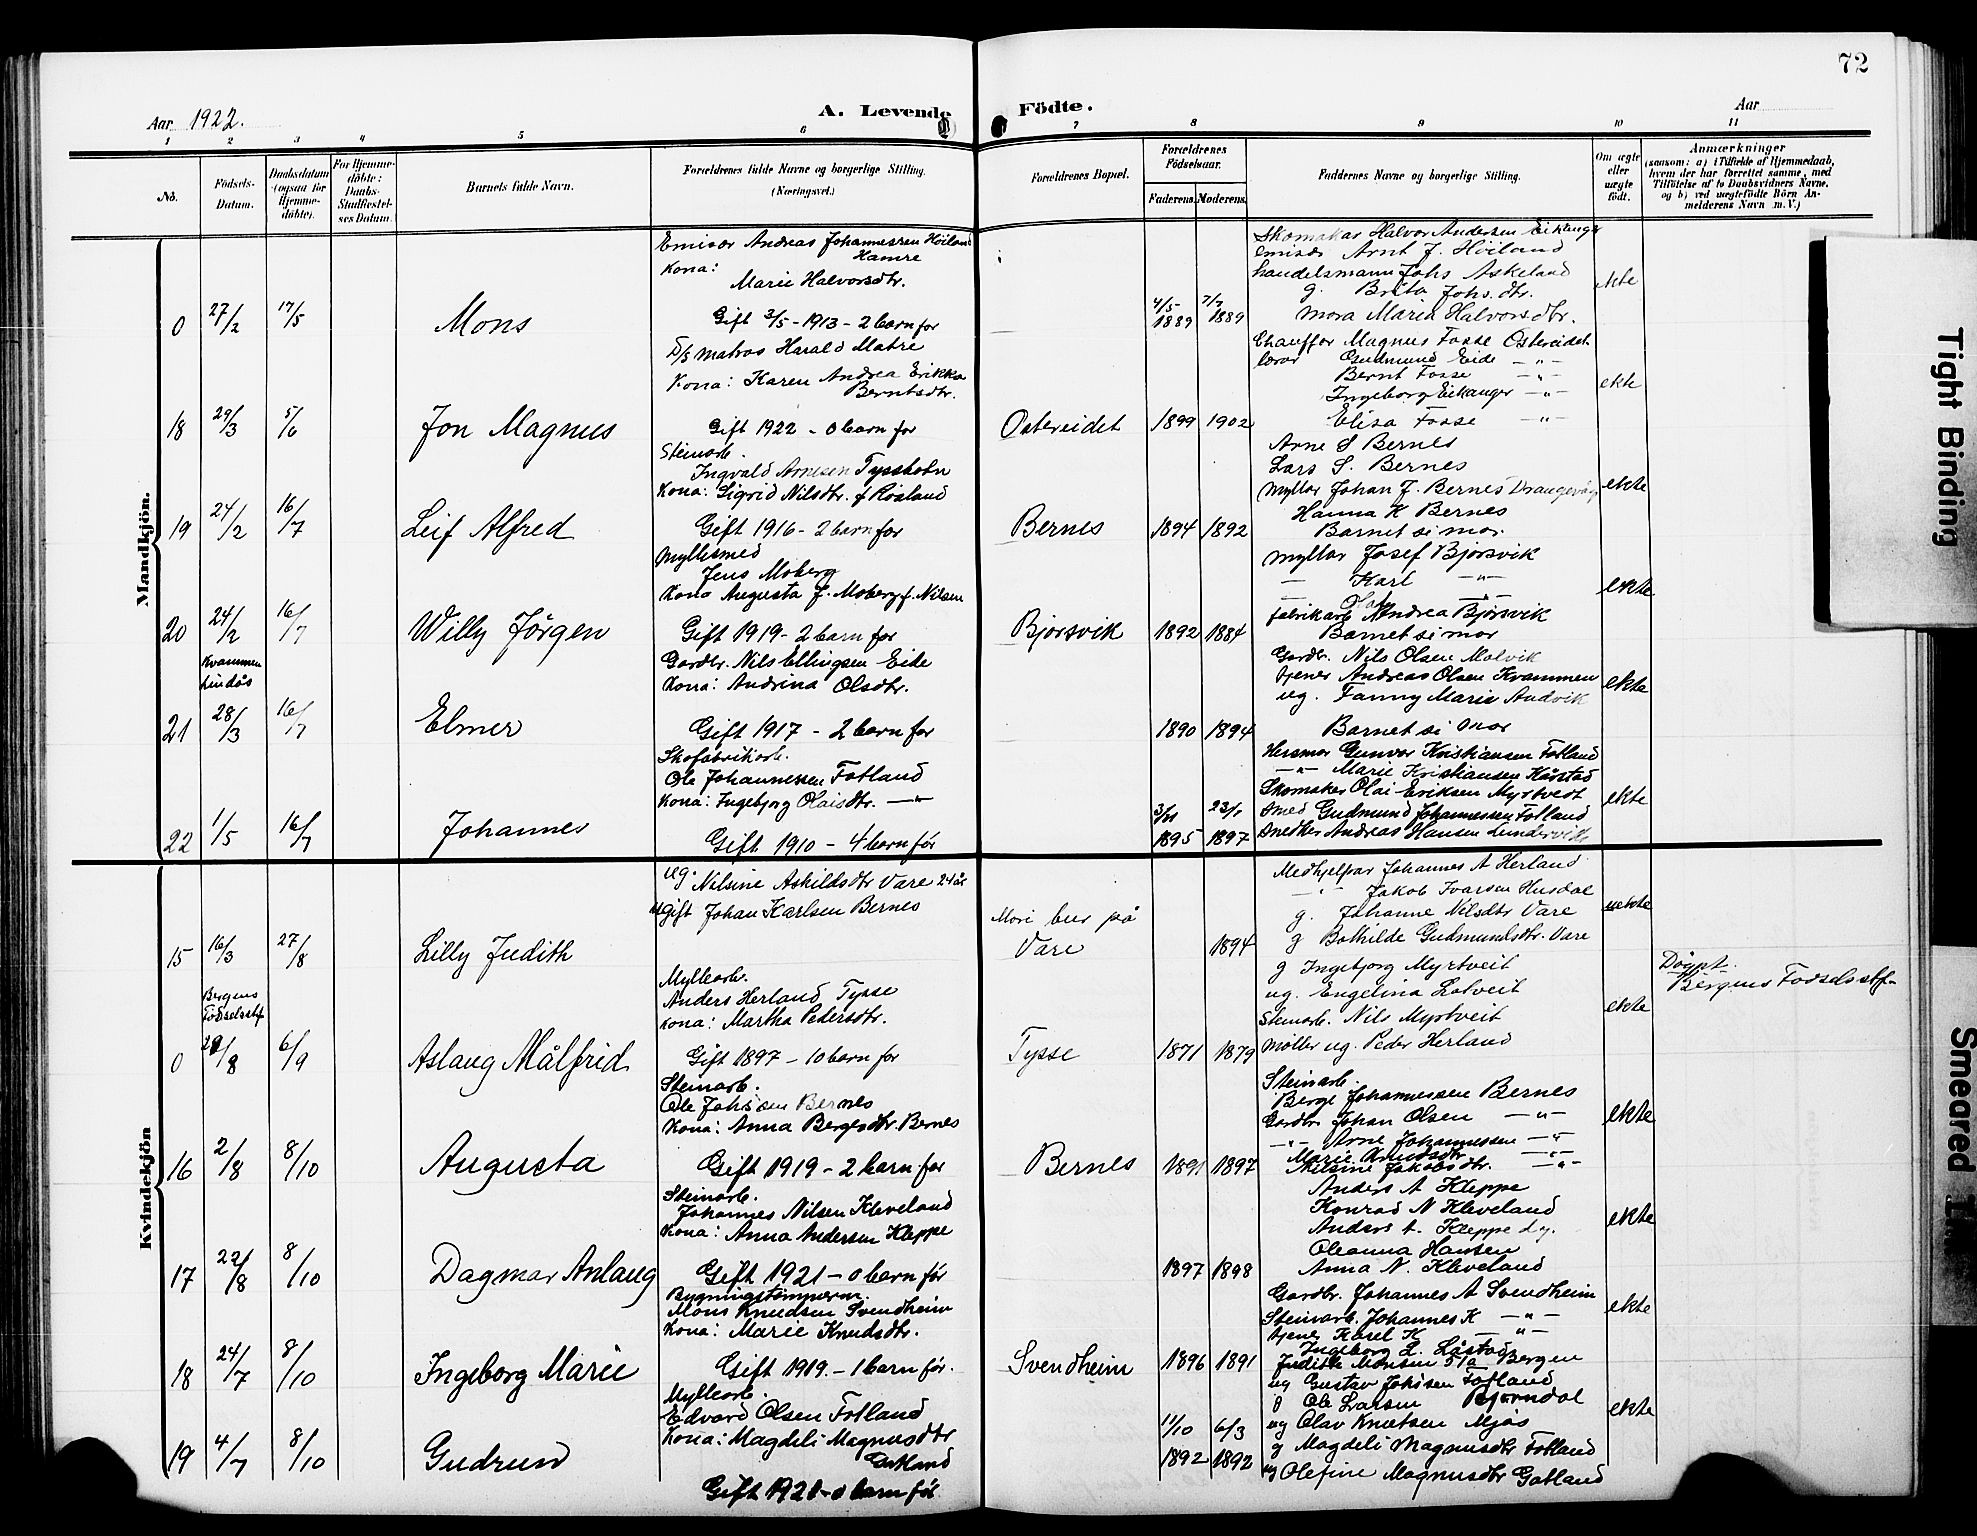 72
Aar 1922.
A. Levende
Födte.
Aar
1
2
3
4
5
6
7
8
9
10
11
No.
Födsels-
Datum.
Daabsdatum
(ogsaa for
Hjemme-
döbte).
For Hjemme-
döbte:
Daabs-
Stadfæstel-
ses Datum.
Barnets fulde Navn.
Forældrenes fulde Navne og borgerlige Stilling.
(Næringsvei.)
Forældrenes Bopæl.
Forældrenes
Födselsaar.
Faderens.
Moderens.
Faddernes Navne og borgerlige Stilling.
Om ægte
eller
uægte
født.
Anmærkninger
(saasom: a) i Tilfælde af Hjemmedaab,
hvem der har forrettet samme, med
Tilføielse af to Daabsvidners Navne,
og b) ved uægtefödte Börn An-
melderens Navn m. V.)
Mandkjön.
0 27/2 17/5 Mons
Emisær Andreas Johannessen Höiland
Hamre
Kona:
Marie Halvorsdtr.
Gift 3/5 - 1913 - 2 barn for
4/5 1889 7/7 1889
Skomakar Halvor Andersen Eikanger
emisær Arnt J. Höiland
handelsmann Johs Askeland
g. Brita Johs.dtr.
mora Marie Halvorsdtr.
ekte
18 29/3 5/6 Jon Magnus
D/s matros Harald Matre
Kona: Karen Andrea Erikka
Berntsdtr.
Gift 1922 - 0 barn for
Ostereidet 1899 1902
Chauffør Magnus Fosse Ostereidet
lærar Gudmund Eide -"-
Bernt Fosse -"-
Ingeborg Eikanger -"-
Elisa Fosse -"-
ekte
19 24/2 16/7 Leif Alfred
Steinarb.
Ingvald Arnesen Tyssholn
Kona: Sigrid Nilsdtr. f Rosland
Gift 1916 - 2 barn for
Bernes 1894 1892
Arne S Bernes
Lars S. Bernes
Myllar Johan J. Bernes
Hanna K Bernes
Barnet si mor.
ekte
20 24/2 16/7 Willy Jörgen
Myllesmed
Jens Moberg
Kona Augusta f. Moberg f. Nilsen
Gift 1919 - 2 barn for
Bjorsvik 1892 1884
Myllar Josef Bjorsvik
- Karl -"-
fabrikarb Andrea Bjorsvik
Barnet si mor
ekte
Kvammen
Lindås
21 28/3 16/7 Elmer
Gardbr. Nils Ellingsen Eide
Kona: Andrina Olsdtr.
Gift 1917 - 2 barn for
1890 1894
Gardbr. Nils Olsen Molvik
tjener Andreas Olsen Kvammen
ug. Fanny Marie Andvik
Barnet si mor
ekte
22 1/5 16/7 Johannes
Skofabrikarb.
Ole Johannessen Fotland
Kona: Ingebjorg Olaisdtr. -"-
Gift 1910 - 4 barn før
1895 23/1 1897
Husmor Gunvor Kristiansen Fotland
-"- Marie Kristiansen
Skomaker Olai Eriksen Myrtveit
smed Gudmund Johannessen Fotland
snedker Andreas Hansen Lundervik
ekte
Kvindekjön
15 16/3 27/8 Lilly Judith
ug. Nilsine Askildsdtr Vare 24 år
Gift Johan Karlsen Bernes
Mori bur på
Vare
1894
Medhjelpar Johannes A Herland
-"- Jakob Ivarsen Husdal
g. Johanne Nilsdtr Vare
g Bothilde Gudmundsdtr. Vare
uekte
Bergens
Fodselsstf.
0 29/8 6/9 Aslaug Målfrid
Myllearb.
Anders Herland Tysse
Kona: Martha Pedersdtr.
Gift 1897 - 10 barn for
Tysse 1871 1879
g Ingebjorg Myrtveit
ug. Engelina Lotveit
Steinarb. Nils Myrtveit
Møller ug. Peder Herland
ekte
Døypt.
Bergens Fodselsstf.
16 2/8 8/10 Augusta
Steinarb.
Ole Johs'sen Bernes
Kona: Anna Bergesdtr. Bernes
Gift 1919 - 2 barn for
Bernes 1891 1897
Steinarb.
Berge Johannessen Bernes
Gardbr. Johan Olsen -"-
-"- Arne Johannessen -"-
Marie Knudsdtr. -"-
Nilsine Jakobsdtr. -"-
ekte
17 22/8 8/10 Dagmar Anlaug
Steinarb.
Johannes Nilsen Kleveland
Kona: Anna Andersen Kleppe
Gift 1921 - 0 barn før
1897 1898
Anders A Kleppe
Konrad N Kleveland
Anders A. Kleppe d.y.
Oleanna Hansen
Anna N. Kleveland
ekte
18 24/7 8/10 Ingeborg Marie
Bygningstömmerm.
Mons Knudsen Svendheim
Kona: Marie Knudsdtr.
Gift 1919. - 1 barn før.
Svendheim 1896 1891
Gardbr. Johannes A Svendheim
Steinarb. Johannes K -"-
tjener Karel K -"-
Ingeborg L.
Judith Monsen Bergen
ekte
19 4/7 8/10 Gudrun
Myllearb.
Edvard Olsen Fotland
Kona: Magdeli Magnusdtr
Gift 1921 - 0 barn før
11/10 1892 6/3 1892
ug Gustav Johs'sen Fotland
g Ole Larsen Bjørndal
ug Olav Knutsen Mjøs
g Magdeli Magnusdtr Fotland
ug Olefine Magnusdtr Gotland
ekte
Tight Binding
Smeared